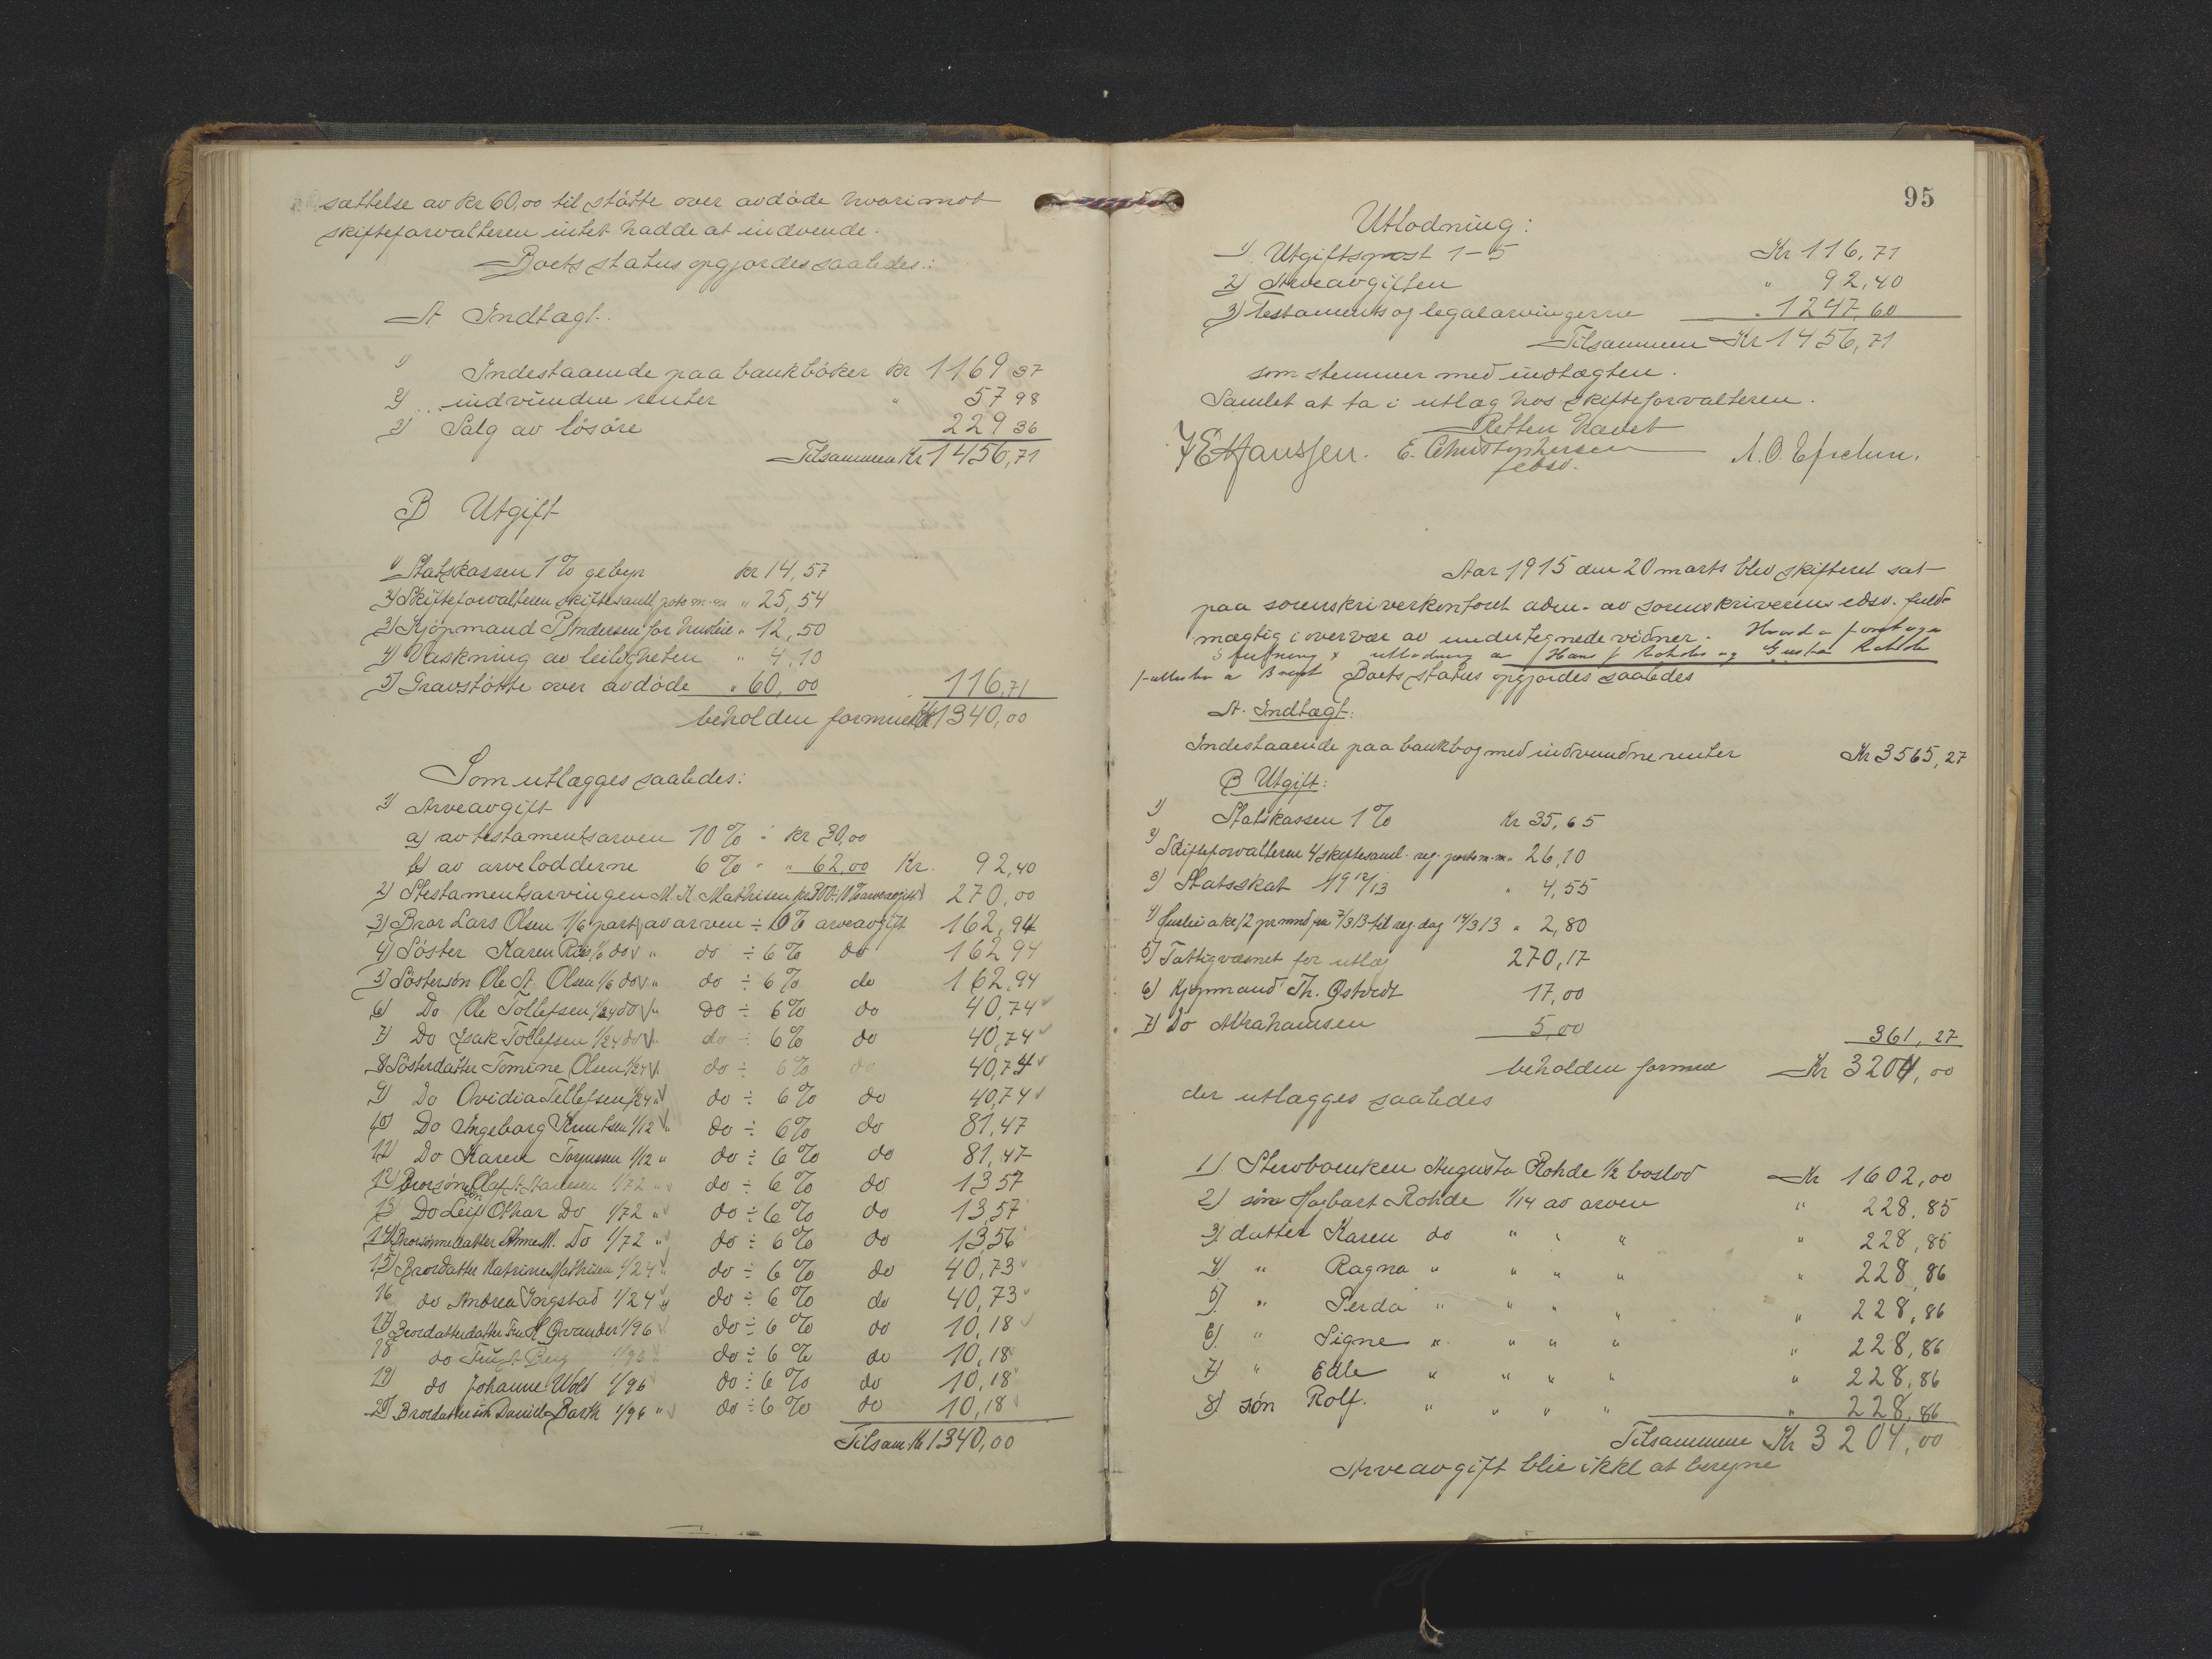 sættelse av kr 60,00 til støtte over avdøde hvorimot
skifteforvalteren intet hadde at indvende.
Boets status opgjordes saaledes:
A Indtægt.
1) Indestaaende paa bankbøker kr 1169 37
2) indvundne renter " 57 98
3) Salg av løsøre 229 36
Tilsammen Kr 1456,71
B Utgift
1) Statskassen 1% gebyr kr 14,57
2) Skifteforvalteren skiftesaml porto m.m " 25,54
3) Kjøpmand P Andersen for husleie " 12,50
4) Vaskning av leiligheten " 4,10
5) Gravstøtte over avdøde " 60,00 116,71
beholden formue Kr 1340,00
Som utlægges saaledes:
1) Arveavgift
a) av testamentsarven 10% = kr 30,00
b) av arvelodderne 6% - " 62,00 Kr. 92,40
2) Testamentsarvingen M. K. Mathisen kr 300 ÷ 10% arveavgift 270,00
3) Bror Lars Olsen 1/6 part av arven ÷ 6% arveavgift 162,94
4) Søster Karen Riis 1/6 do " do ÷ 6% do 162 94
5) Søstersøn Ole A. Olsen 1/6 do " do ÷ 6% do 162,94
6) Do Ole Tollefsen 1/24 do " do ÷ 6% do 40,74
7) Do Isak Tollefsen 1/24 do do ÷ 6% do 40,74
8) Søsterdatter Tomine Olsen 1/24 do ÷ 6% do 40,74
9) Do Ovidia Tellefsen 1/24 " do ÷ 6% do 40,74
10) Do Ingeborg Knutsen 1/12 " do ÷ 6% do 81,47
11) Do Karen Torjussen 1/12 " do ÷ 6% do 81,47
12) Brorsøns Olaf A. 1/72 " do ÷ 6% do 13,57
13) Do Leif Othar Do 1/72 " do ÷ 6% do 13,57
14) Brorsønnedatter Anne M. Do 1/72 " do ÷ 6% do 13,56
15) Brordatter Katrine Mathisen 1/24 " do ÷ 6% do 40,73
16 do Andrea Yngstad 1/24 " do ÷ 6% do 40,73
17) Brordatterdatter Fru 1/96 do ÷ 6% do 10,18
18 do Fru A Berg 1/96 do ÷ 6% do 10,18
19) do Johanne Wold 1/96 do ÷ 6% do 10,18
20) Brordattersøn Daniel Barth 1/96 " do ÷ 6% do 10,18
Tilsam. Kr 1340,00
95
Utlodning:
1) Utgiftspost 1-5 Kr 116,71
2) Arveavgiften " 92,40
3) Testaments og legalarvingerne " 1247,60
Tilsammen Kr 1456,71
som stemmer med indtægten.
Samlet at ta i utlæg hos skifteforvalteren.
Retten hævet
E. Christophersen
edsv.
Aar 1915 den 20 marts blev skifteret sat
paa sorenskriverkontoret adm. av sorenskriverens edsv. fuld-
mægtig i overvær av undertegnede vidner.
Slutning utlodning Hans Rohde og Rohde
Boets status opgjordes saaledes
A. Indtægt:
Indestaaende paa bankbog med indvundne renter Kr 3565,27
B Utgift:
1) Statskassen 1% Kr 35,65
2) Skifteforvalteren 4 skiftesaml. reg. porto m.m. " 26,10
3) Statsskat 19 12/13 " 4,55
4) Husleie a kr 12 pr mnd fra 7/3 13 til reg. dag 14/3 13 " 2,80
5) Fattigvæsnet for utlæg 270,17
6) Kjøpmand Th. Østvedt 17,00
7) Do Abrahamsen 5,00 361,27
beholden formue Kr 3204,00
der utlægges saaledes
1) Stervboenken Augusta Rohde 1/2 boslod Kr 1602,00
2) søn Hagbart Rohde 1/14 av arven " 228,85
3) datter Karen do " " " " 228,85
4) " Ragna " " " " " 228,86
5) " Gerda " " " " " 228,86
6) " Signe " " " " " 228,86
7) " Edle " " " " " 228,86
8) søn Rolf. " " " " " 228,86
Tilsammen Kr 3204,00
Arveavgift blir ikke at beregne